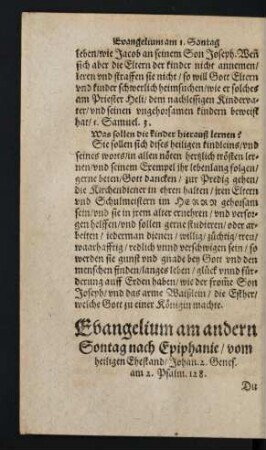 Evangelium am 1. Sontag
leben/wie Jacob an seinem Son Joseph. Weñ
sich aber die Eltern der kinder nicht annemen/
leren vnd straffen sie nicht/ so will Gott Eltern
vnd kinder schwerlich heimsuchen/wie er solches
am Priester Heli/ dem nachlessigen Kinderva-
ter/vnd seinen vngehorsamen kindern beweist
hat/ 1. Samuel. 3.
Was sollen die kinder hierauß lernen?
Sie sollen sich dises heiligen kindleins/vnd
seines worts/in allen nöten hertzlich trösten ler-
nen/vnd seinem Exempel jhr lebenlang folgen/
gerne beten/Gott dancken/ zur Predig gehen/
die Kirchendiener in ehren halten/ jren Eltern
vnd Schulmeistern im HERRN gehorsam
sein/vnd sie in jrem alter ernehren/ vnd versor-
gen helffen/vnd sollen gerne studieren/ oder ar-
beiten/ jederman dienen/ willig/ züchtig/trew/
waarhafftig/ redlich vnnd verschwigen sein/ so
werden sie gunst vnd gnade bey Gott vnd den
menschen finden/langes leben/ glück vnnd für-
derung auff Erden haben/ wie der from̃e Son
Joseph/ vnd das arme Waißlein/ die Esther/
welche Gott zu einer Königin machte.
Evangelium am andern
Sontag nach Epiphanie/ vom
heiligen Ehestand/ Johan. 2. Genes.
am 2. Psalm. 128.
Du